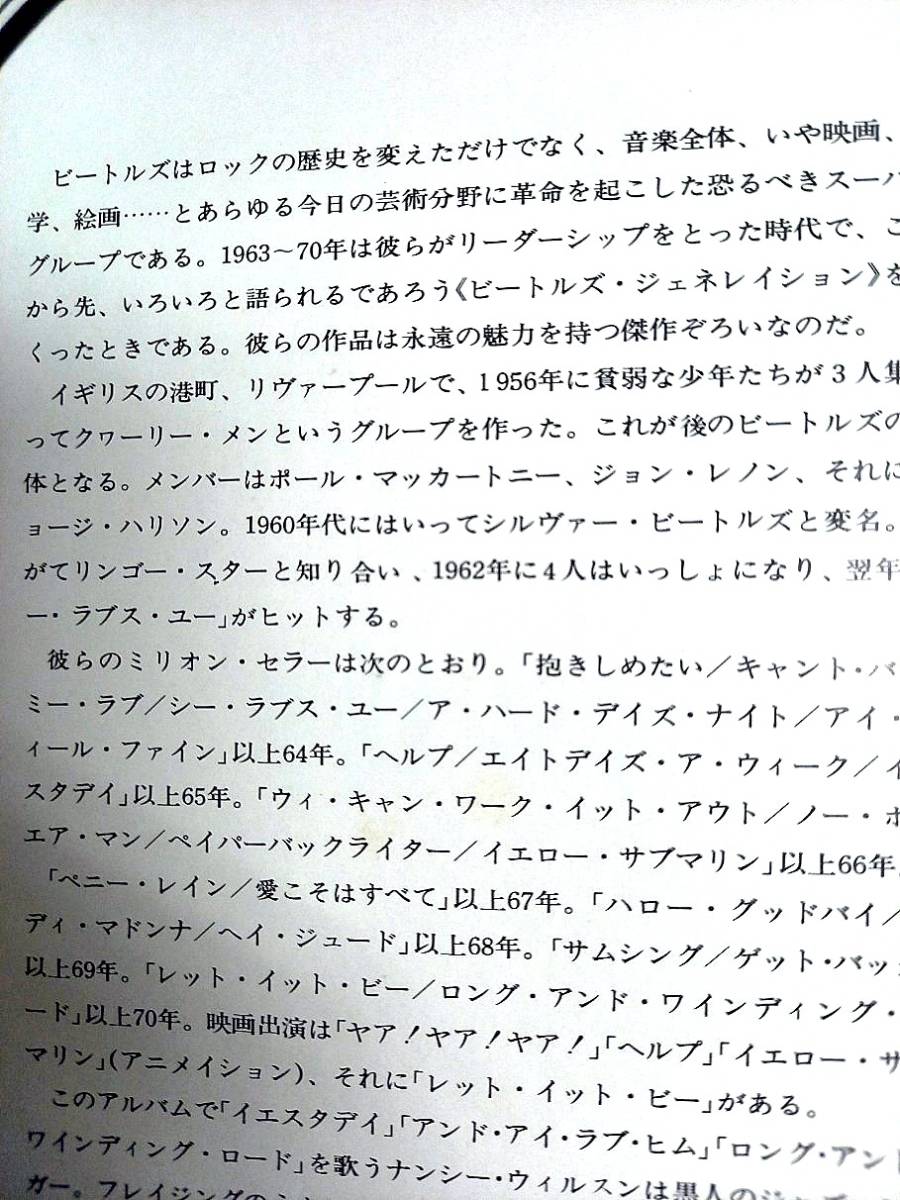 ビートルズはロックの歴史を変えただけでなく、音楽全体、いや映画、
学、絵画……とあらゆる今日の芸術分野に革命を起こした恐るべきスーパ
グループである。1963〜70年は彼らがリーダーシップをとった時代で、こ
から先、いろいろと語られるであろう《ビートルズ・ジェネレイション》を
くったときである。彼らの作品は永遠の魅力を持つ傑作ぞろいなのだ。
イギリスの港町、リヴァープールで、1956年に貧弱な少年たちが3人集
ってクヮーリー・メンというグループを作った。これが後のビートルズの
体となる。メンバーはポール・マッカートニー、ジョン・レノン、それに
ョージ・ハリソン。1960年代にはいってシルヴァー・ビートルズと変名。
がてリンゴー・スターと知り合い、1962年に4人はいっしょになり、翌年
ー・ラブス・ユー」がヒットする。
彼らのミリオン・セラーは次のとおり。「抱きしめたい/キャント・バ
ミー・ラブ/シー・ラブス・ユー/ア・ハード・デイズ・ナイト/アイ・
ィール・ファイン」以上64年。「ヘルプ/エイトデイズ・ア・ウィーク/イ
スタデイ」以上65年。「ウィ・キャン・ワーク・イット・アウト/ノー・ホ
エア・マン/ペイパーバックライター/イエロー・サブマリン」以上66年。
「ペニー・レイン/愛こそはすべて」以上67年。「ハロー・グッドバイ/
ディ・マドンナ/ヘイ・ジュード」以上68年。「サムシング/ゲット・バッ
以上69年。「レット・イット・ビー/ロング・アンド・ワインディング・
ード」以上70年。映画出演は「ヤア!ヤア!ヤア!」「ヘルプ」「イエロー・サ
マリン」(アニメイション)、それに「レット・イット・ビー」がある。
このアルバムで「イエスタデイ」「アンド・アイ・ラブ・ヒム」「ロング・アンド
ワインディング・ロード」を歌うナンシー・ウィルスンは黒人のジャ
ガー。フレイジングの